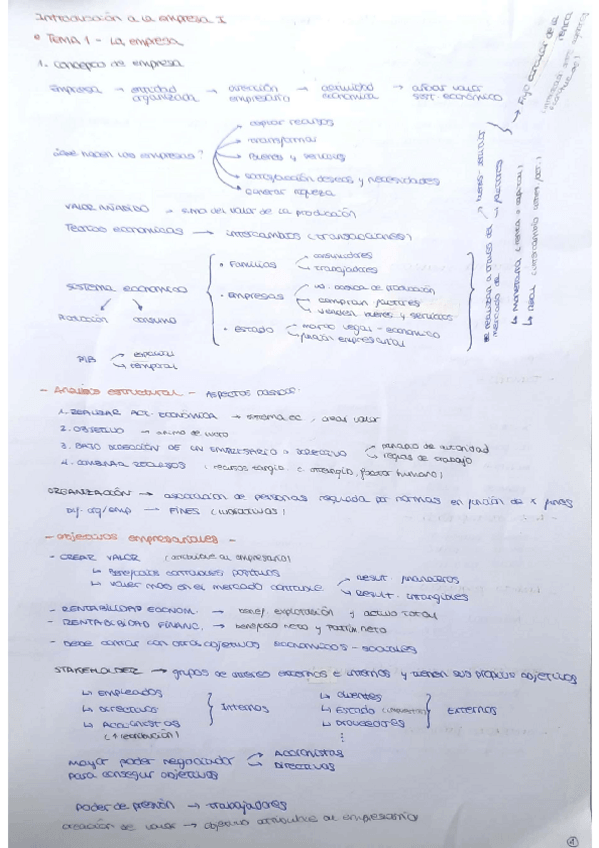 Introducción a la empresa I
• TEMA 1 - La empresa
1. Concepto de empresa
Empresa → entidad organizada → dirección empresario → actividad económica → añadir valor
¿Qué hacen las empresas?
captar recursos
transformar
Bienes y servicios
satisfacción deseos y necesidades
Generar riqueza
VALOR AÑADIDO = suma del valor de la producción
Teorías económicas → intercambios (transacciones)
SISTEMA ECONÓMICO
Producción
consumo
• Familias
consumidores
trabajadores
• Empresas
compran factores
venden bienes y servicios
• Estado
marco legal - económico
función empresarial
PIB
espacial
temporal
Se realizan a través del mercado de
bienes-servicios
factores
Flujo circular de la renta
↳ Monetaria (renta = capital)
↳ Real
- Análisis estructural - ASPECTOS BÁSICOS:
1. REALIZAR ACT. ECONÓMICA → sistema ec, crear valor
2. OBJETIVO → ánimo de lucro
3. BAJO DIRECCIÓN DE UN EMPRESARIO o DIRECTIVO
principio de autoridad
reglas de trabajo
4. COMBINAR RECURSOS (recursos tangib. e intangib, factor humano)
ORGANIZACIÓN → asociación de personas regulada por normas en función de x fines
Dif. org/emp → FINES (lucrativas)
- Objetivos empresariales -
- CREAR VALOR (atribuible al empresario)
↳ Beneficios contables positivos
↳ valer más en el mercado contable
Result. financieros
Result. intangibles
- RENTABILIDAD ECONOM. → benef. explotación y activo total
- RENTABILIDAD FINANC. → beneficio neto y Patrim neto
- Debe contar con otros objetivos económicos - sociales
STAKEHOLDER → grupos de interés externos e internos y tienen sus propios objetivos
↳ Empleados
↳ Directivos
↳ Accionistas
(↑ retribución)
Internos
↳ Clientes
↳ Estado
↳ Proveedores
⋮
Externos
Mayor poder negociador para conseguir objetivos
Accionistas
Directivos
Poder de presión → trabajadores
creación de valor → objetivo atribuible al empresario
1